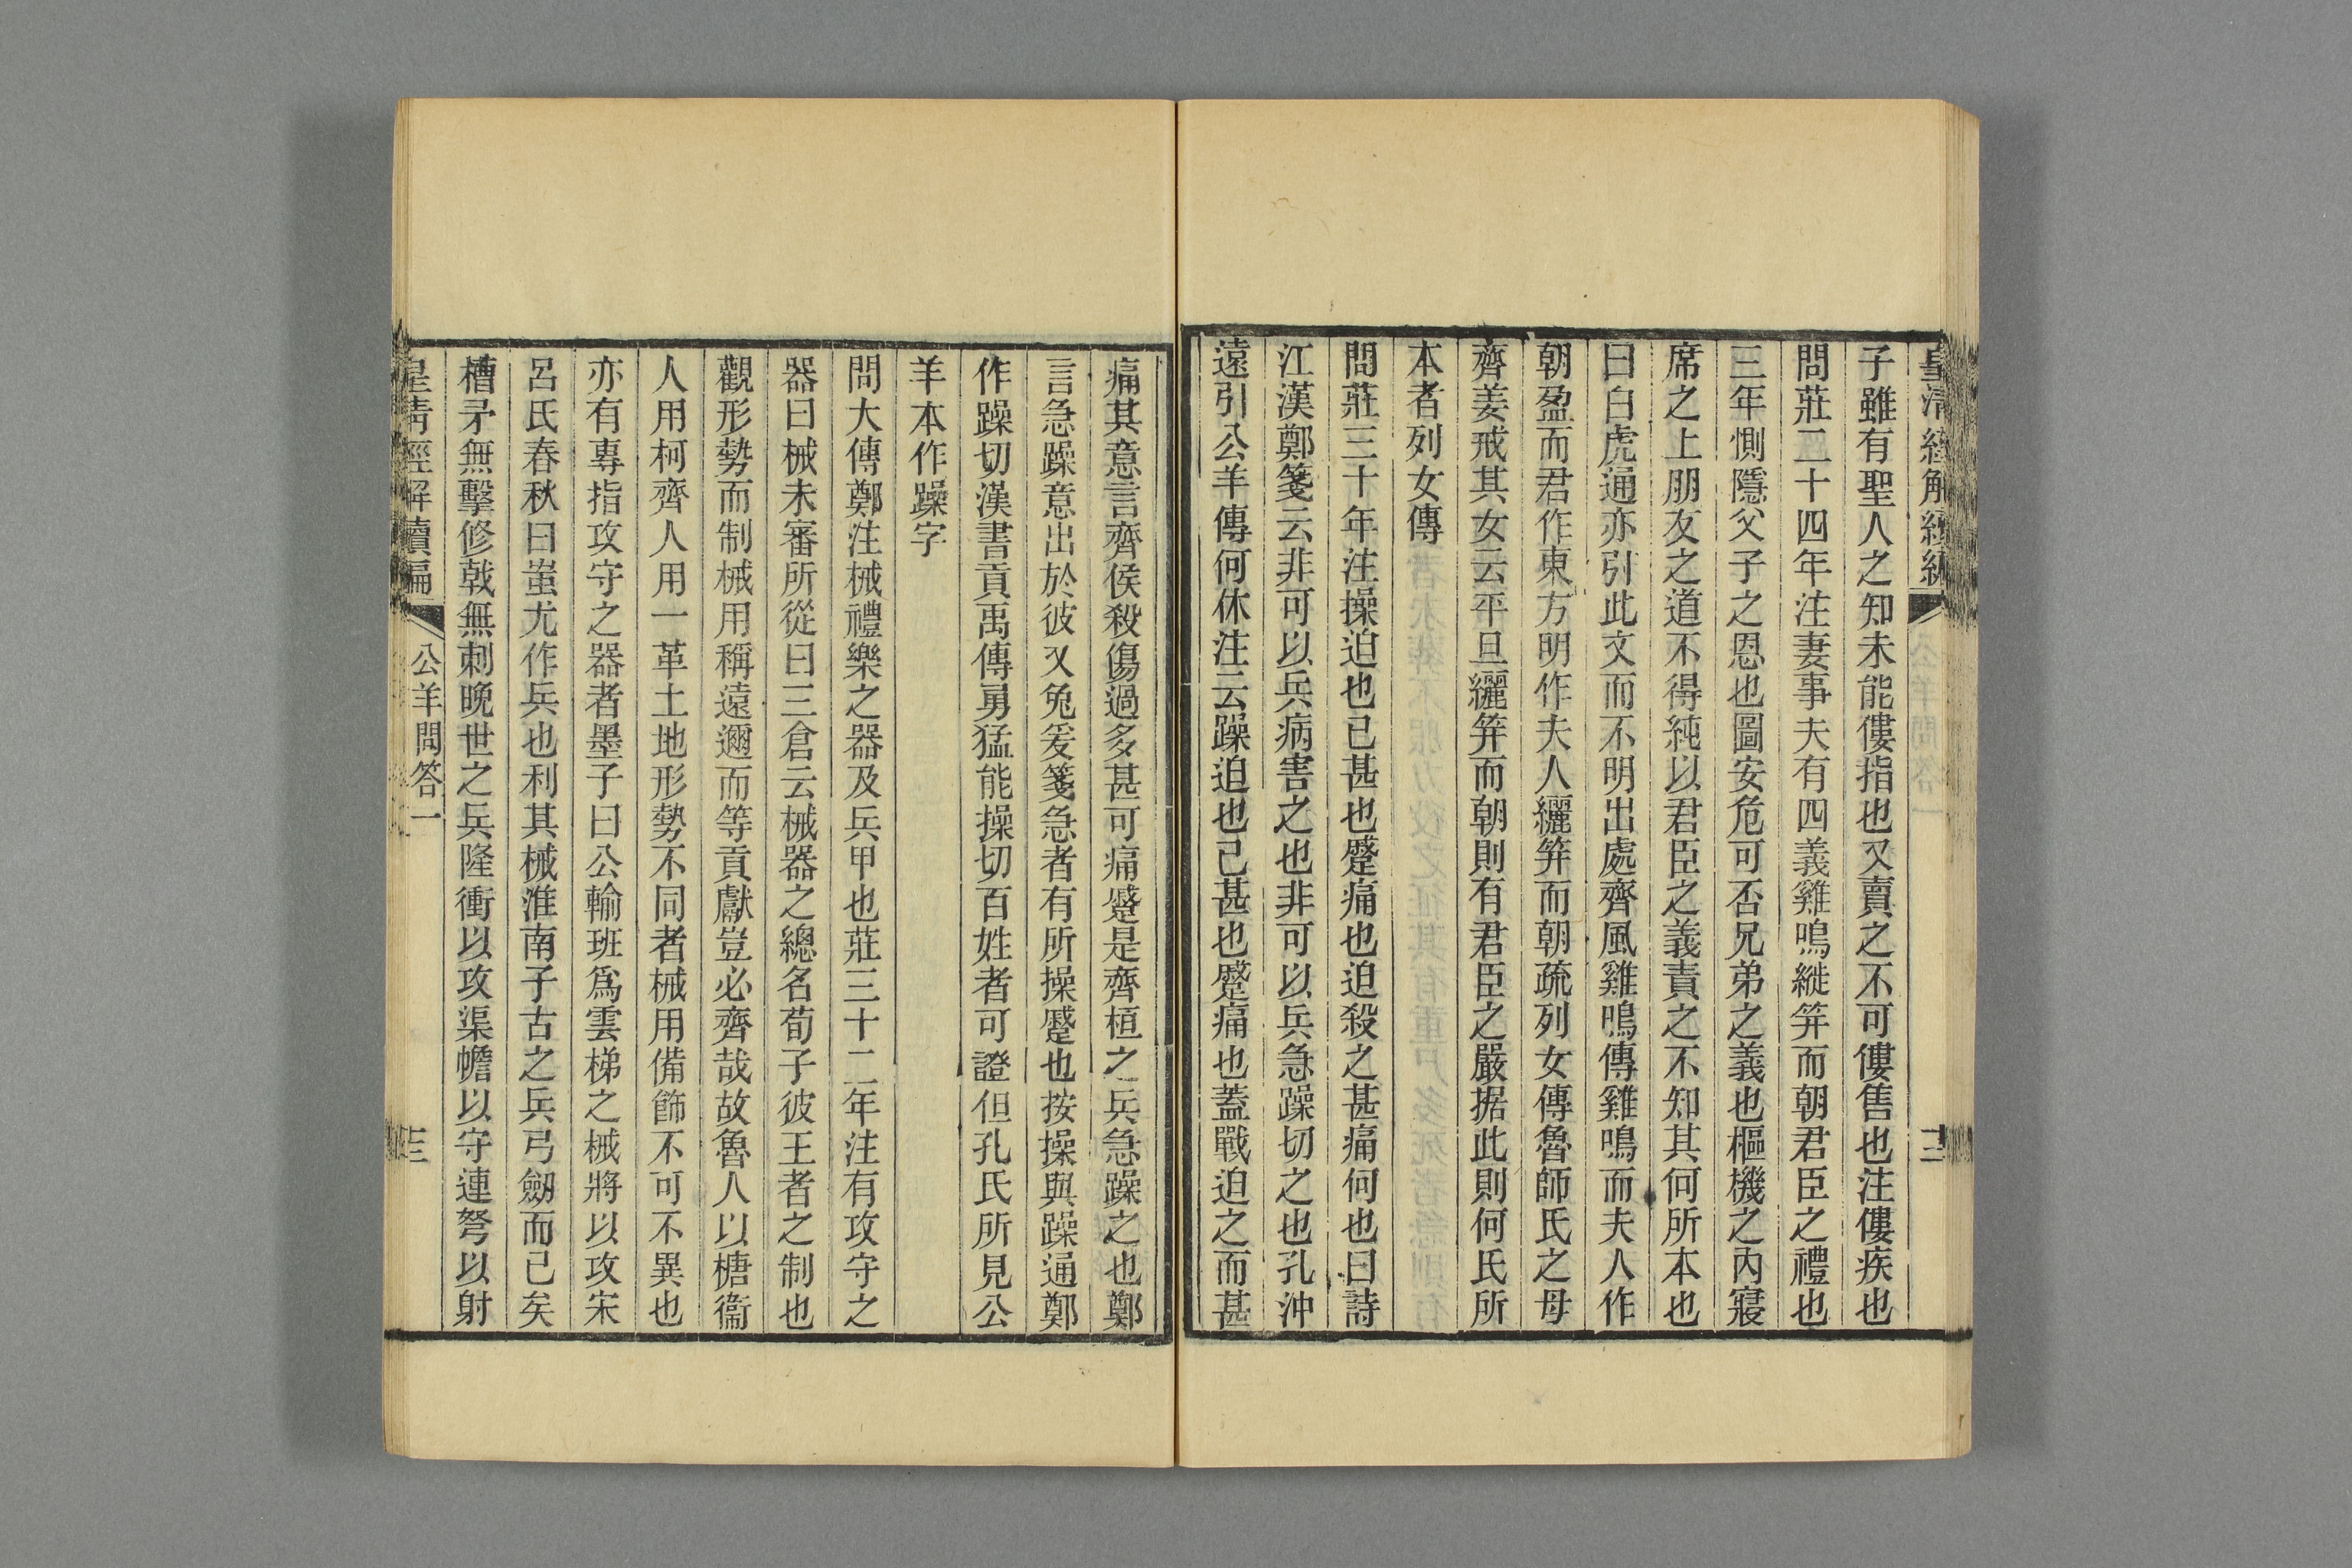 皇清經解續編
十二
子雖有聖人之知未能僂指也又賣之不可僂售也注僂疾也
問莊二十四年注妻事夫有四義雞鳴縰笄而朝君臣之禮也
三年惻隱父子之恩也圖安危可否兄弟之義也樞機之內寢
席之上朋友之道不得純以君臣之義責之不知其何所本也
曰白虎通亦引此文而不明出處齊風雞鳴傳雞鳴而夫人作
朝盈而君作東方明作夫人纚笄而朝疏列女傳魯師氏之母
齊姜戒其女云平旦纚笄而朝則有君臣之嚴据此則何氏所
本者列女傳
問莊三十年注操迫也已甚也蹙痛也迫殺之甚痛何也曰詩
江漢鄭箋云非可以兵病害之也非可以兵急躁切之也孔沖
遠引公羊傳何休注云躁迫也已甚也蹙痛也蓋戰迫之而甚
痛其意言齊侯殺傷過多甚可痛蹙是齊桓之兵急躁之也鄭
言急躁意出於彼又兔爰箋急者有所操蹙也按操與躁通鄭
作躁切漢書貢禹傳勇猛能操切百姓者可證但孔氏所見公
羊本作躁字
問大傳鄭注械禮樂之器及兵甲也莊三十二年注有攻守之
器曰械未審所從曰三倉云械器之總名荀子彼王者之制也
觀形勢而制械用稱遠邇而等貢獻豈必齊哉故魯人以榶衞
人用柯齊人用一革土地形勢不同者械用備飾不可不異也
亦有專指攻守之器者墨子曰公輸班爲雲梯之械將以攻宋
呂氏春秋曰蚩尤作兵也利其械淮南子古之兵弓劔而已矣
槽矛無擊修戟無刺晚世之兵隆衝以攻渠幨以守連弩以射
皇清經解續編
公羊問答一
十三